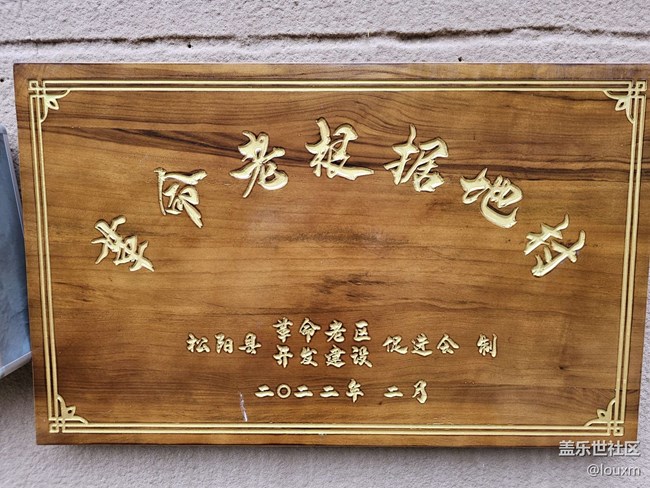 革命老根据地村
松阳县 革命老区 促进会 制
开发建设
二〇二二年 二月
盖乐世社区
@louxm